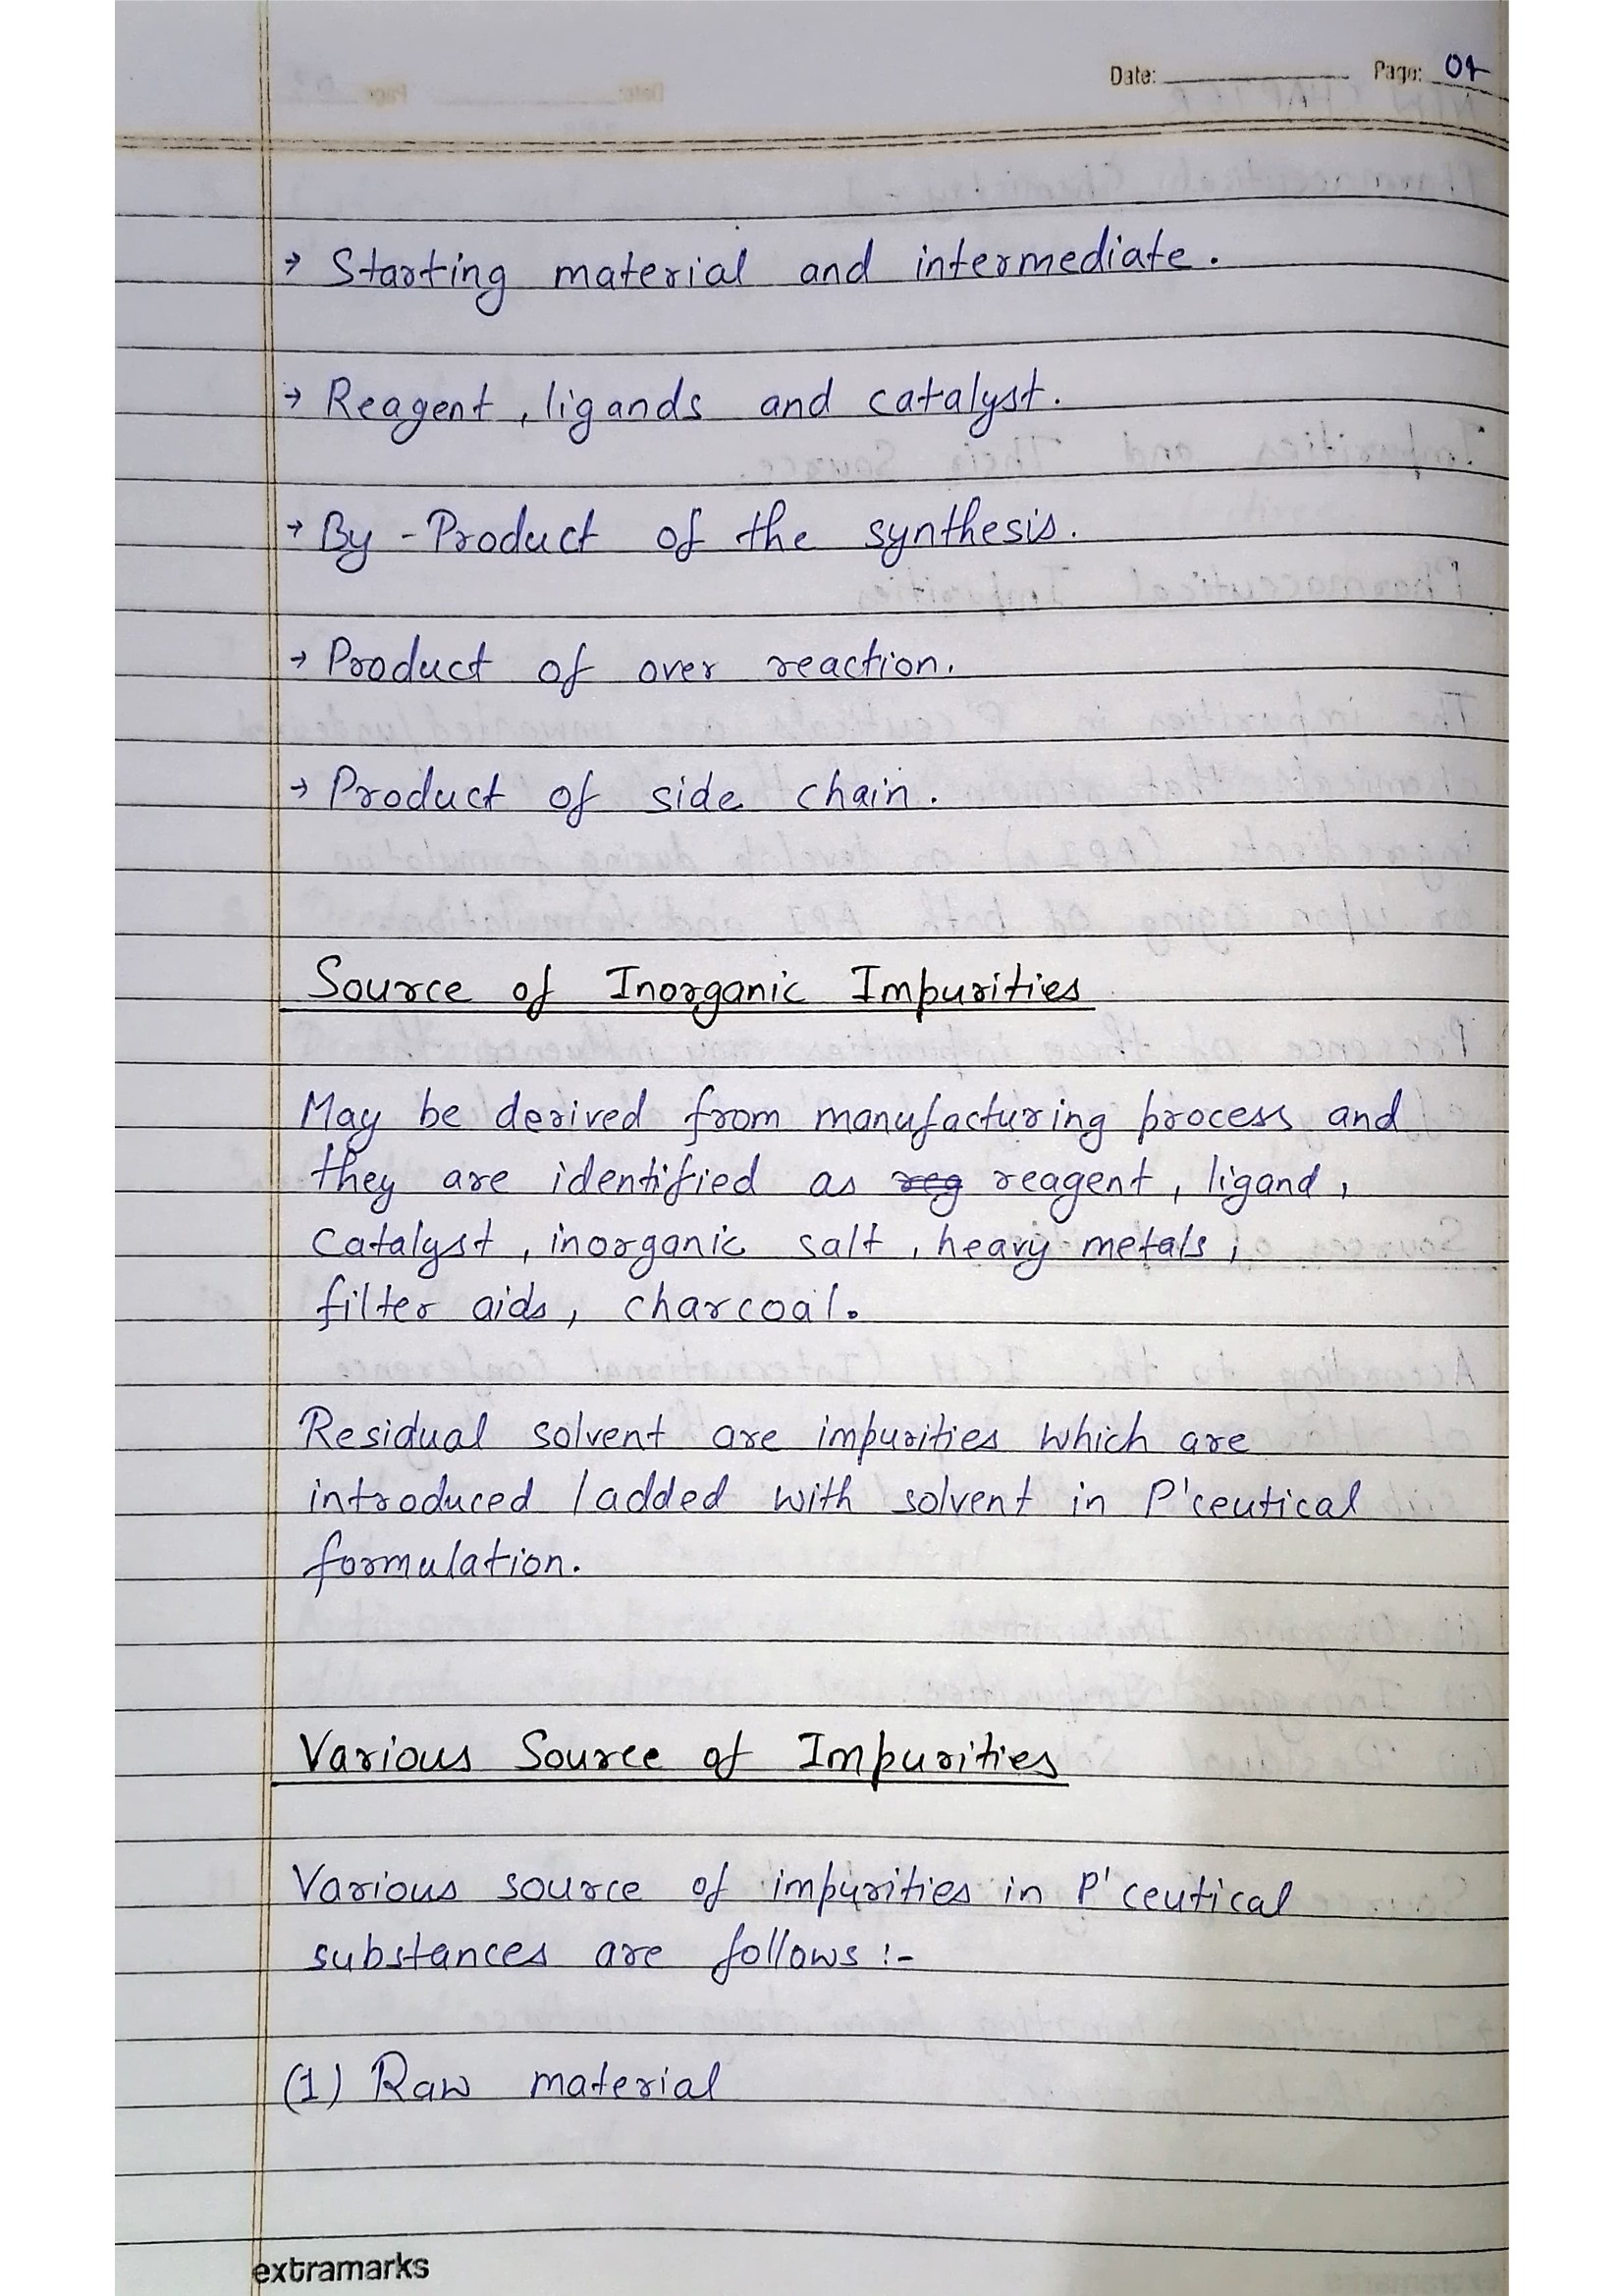 Date: Page: 04
→ Starting material and intermediate.
→ Reagent, ligands and catalyst.
→ By-Product of the synthesis.
→ Product of over reaction.
→ Product of side chain.
Source of Inorganic Impurities
May be derived from manufacturing process and
they are identified as reg reagent, ligand,
catalyst, inorganic salt, heavy metals,
filter aids, charcoal.
Residual solvent are impurities which are
introduced /added with solvent in P'ceutical
formulation.
Various Source of Impurities
Various source of impurities in P'ceutical
substances are follows :-
(1) Raw material
extramarks